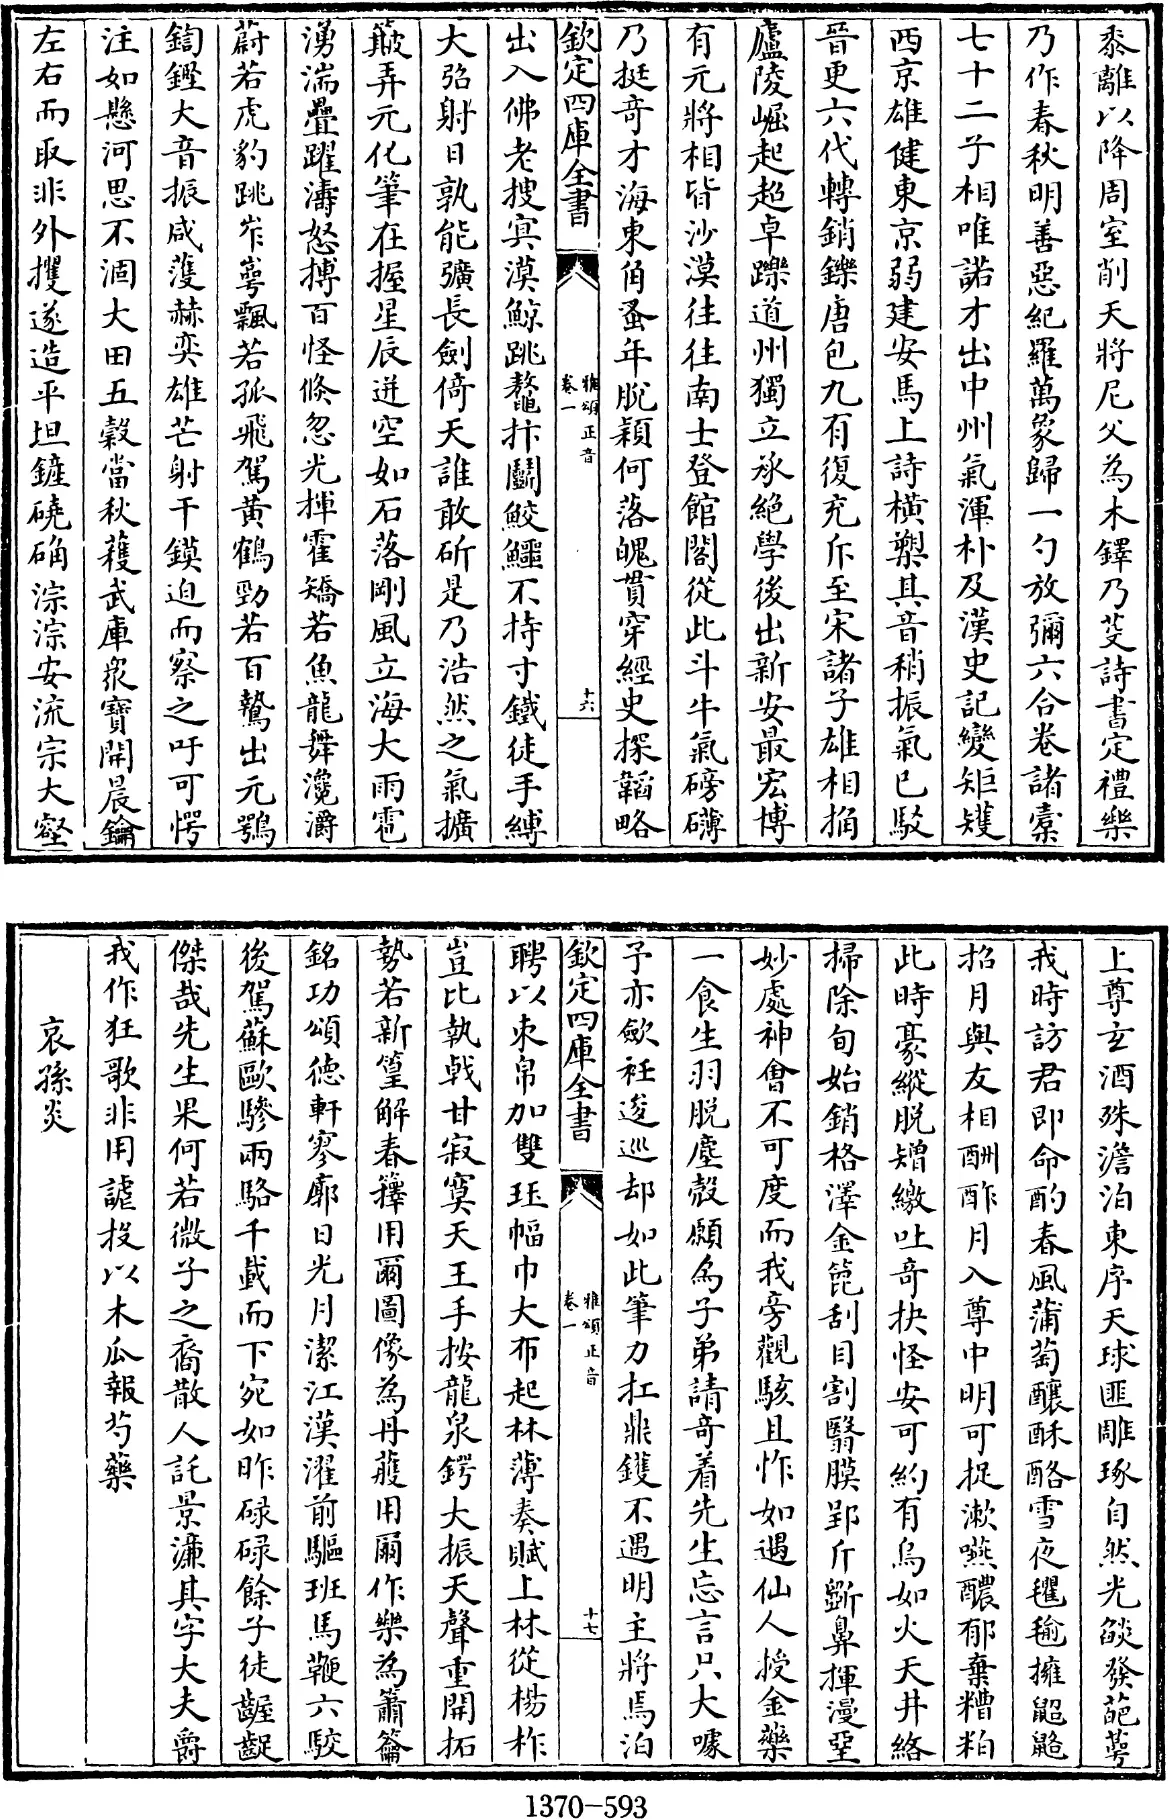 黍離以降周室削天將尼父為木鐸乃芟詩書定禮樂
乃作春秋明善惡紀羅萬象歸一勺放彌六合卷諸橐
七十二子相唯諾才出中州氣渾朴及漢史記變矩矱
西京雄健東京弱建安馬上詩橫槊其音稍振氣已駁
晉更六代轉銷鑠唐包九有復充斥至宋諸子雄相捔
廬陵崛起超卓躒道州獨立承絕學後出新安最宏博
有元將相皆沙漠往往南士登館閣從此斗牛氣磅礴
乃挺奇才海東角蚤年脫穎何落魄貫穿經史探韜略
欽定四庫全書
雅頌正音
卷一
十六
出入佛老搜冥漠鯨跳鼇抃鬭鮫鱷不持寸鐵徒手縛
大弨射日孰能彍長劍倚天誰敢斫是乃浩然之氣擴
簸弄元化筆在握星辰迸空如石落剛風立海大雨雹
湧湍疊躍濤怒搏百怪倏忽光揮霍矯若魚龍舞瀺灂
蔚若虎豹跳岝崿飄若孤飛駕黃鶴勁若百鷙出元鶚
鍧鏗大音振咸濩赫奕雄芒射干鏌迫而察之吁可愕
注如懸河思不涸大田五穀當秋穫武庫眾寶開晨鑰
左右而取非外攫遂造平坦鏟磽确淙淙安流宗大壑
上尊玄酒殊澹泊東序天球匪雕琢自然光燄發葩萼
我時訪君即命酌春風蒲萄釀酥酪雪夜氍毹擁鼦貉
招月與友相酬酢月入尊中明可捉漱嚥醲郁棄糟粕
此時豪縱脫矰繳吐奇抉怪安可約有烏如火天井絡
掃除旬始銷格澤金篦刮目割翳膜郢斤斲鼻揮漫堊
妙處神會不可度而我旁觀駭且怍如遇仙人授金藥
一食生羽脫塵殼願為子弟請奇着先生忘言只大噱
予亦斂衽逡巡却如此筆力扛鼎鑊不遇明主將焉泊
欽定四庫全書
雅頌正音
卷一
十七
聘以束帛加雙玨幅巾大布起林薄奏賦上林從楊柞
豈比執戟甘寂寞天王手按龍泉鍔大振天聲重開拓
勢若新篁解春籜用爾圖像為丹雘用爾作樂為簫籥
銘功頌德軒寥廓日光月潔江漢濯前驅班馬鞭六駮
後駕蘇歐驂兩駱千載而下宛如昨碌碌餘子徒齷齪
傑哉先生果何若微子之裔散人託景濂其字大夫爵
我作狂歌非用謔投以木瓜報芍藥
哀孫炎
1370-593